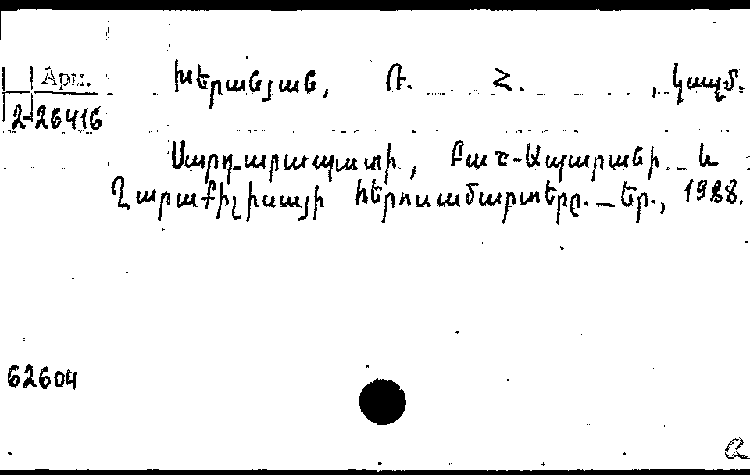 Арм.
Խերանյան, Ռ. Հ. , կազմ.
2-26416
Սարդարապատի, Բաշ-Ապարանի և
Ղարաքիլիսայի հերոսամարտերը. _ Եր., 1988.
62604